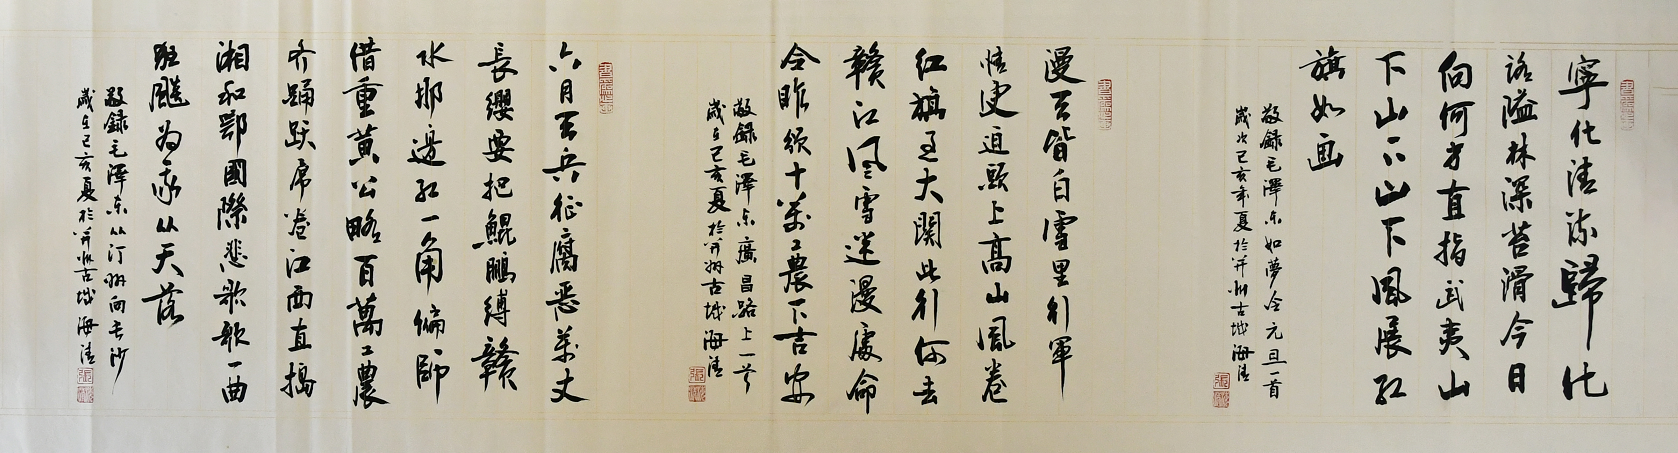 寧化清流歸化
路隘林深苔滑今日
向何方直指武夷山
下山下山下風展红
旗如画
敬錄毛澤东如夢令元旦一首
歲次己亥年夏於并州古城海清
漫天皆白雪里行軍
情更迫頭上高山風卷
红旗过大関此行何去
贛江風雪迷漫處命
令昨颁十萬工農下吉安
敬錄毛澤东廣昌路上一首
歲在己亥夏於并州古城海清
六月天兵征腐恶萬丈
長纓要把鯤鵬縛贛
水那邊红一角偏師
借重黄公略百萬工農
齐踊跃席卷江西直搗
湘和鄂國際悲歌歌一曲
狂飚为我从天落
敬錄毛澤东从汀州向長沙
歲在己亥夏於并州古城海清